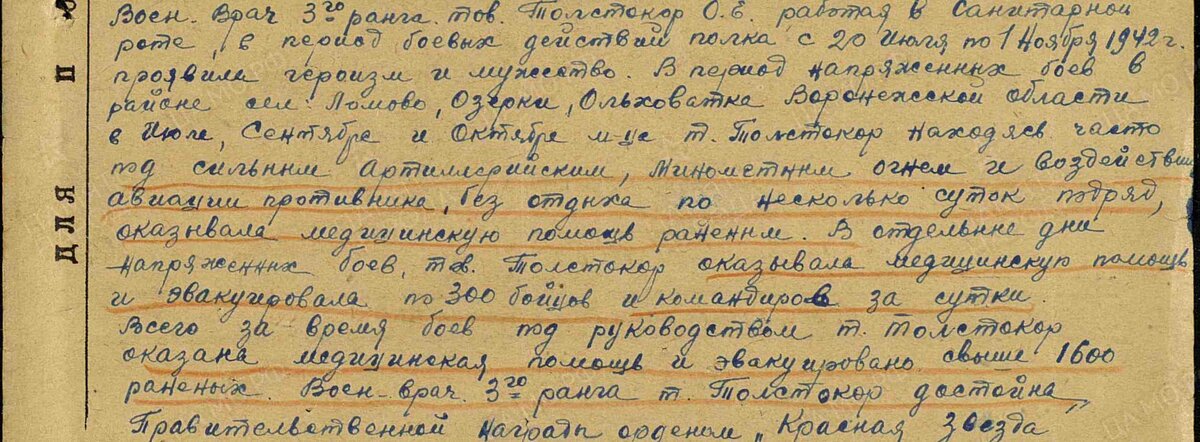 Воен. Врач 3го ранга тов. Толстокор О.Е. работая в Санитарной
роте, в период боевых действий полка с 20 июля по 1 Ноября 1942 г.
проявила героизм и мужество. В период напряженных боев в
районе сел: Ломово, Озерки, Ольховатка Воронежсской области
в Июле, Сентябре и Октябре м-це т. Толстокор находясь часто
под сильным Артиллерийским, Минометным огнем и воздействии
авиации противника, без отдыха по несколько суток подряд,
оказывала медицинскую помощь раненым. В отдельные дни
напряженных боев, тов. Толстокор оказывала медицинскую помощь
и эвакуировала по 300 бойцов и командиров за сутки.
Всего за время боев под руководством т. Толстокор
оказана медицинская помощь и эвакуировано свыше 1600
раненых. Воен-врач. 3го ранга т. Толстокор достойна
Правительственной награды орденом „Красная Звезда
ДЛЯ П